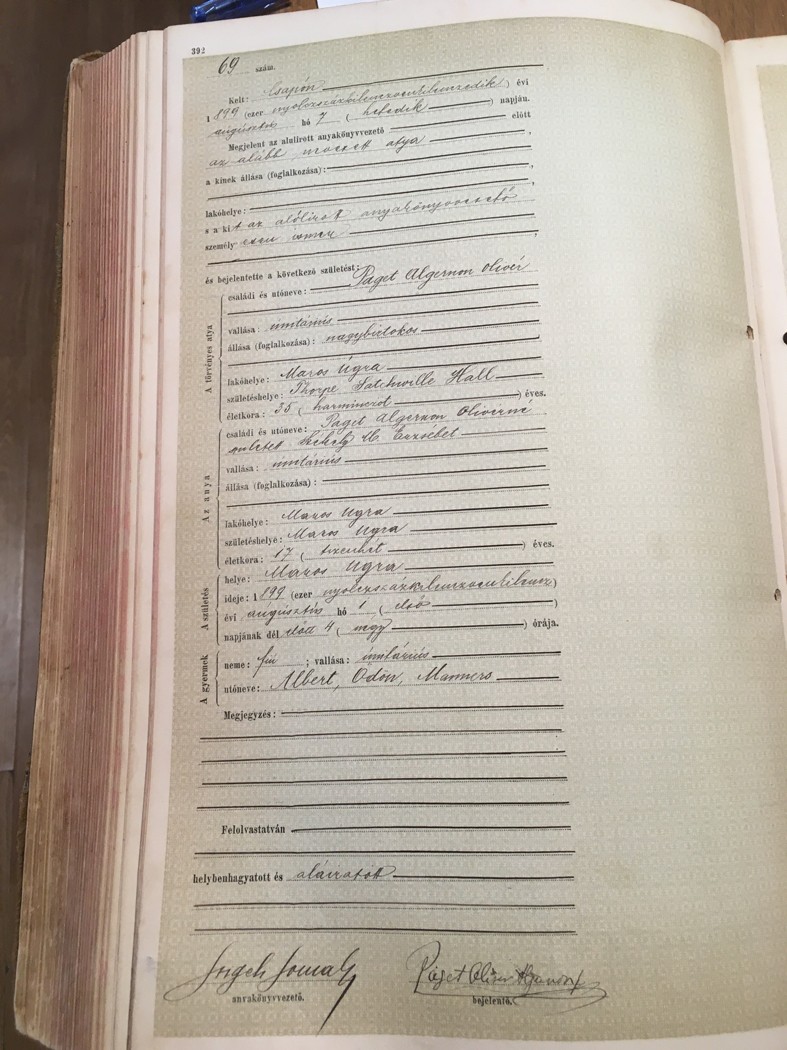 392
69 szám.
Kelt: Csapón
1 899 (ezer nyolczszázkilenczvenkilenczedik) évi
augusztus hó 7 (hetedik) napján.
Megjelent az alulirott anyakönyvvezető előtt
az alább nevezett atya,
a kinek állása (foglalkozása):
lakóhelye:
s a kit az alólirott anyakönyvvezető
személyesen ismer,
és bejelentette a következő születést:
A törvényes atya
családi és utóneve: Paget Algernon Olivér
vallása: unitárius
állása (foglalkozása): nagybirtokos
lakóhelye: Maros Ugra
születéshelye: Thorpe Satchville Hall
életkora: 35 (harminczöt) éves.
Az anya
családi és utóneve: Paget Algernon Oliverné
született Székely M. Erzsébet
vallása: unitárius
állása (foglalkozása):
lakóhelye: Maros Ugra
születéshelye: Maros Ugra
életkora: 17 (tizenhét) éves.
A születés
helye: Maros Ugra
ideje: 1 899 (ezer nyolczszázkilenczvenkilencz)
évi augusztus hó 1 (első)
napjának dél előtt 4 (négy) órája.
A gyermek
neme: fiú; vallása: unitárius
utóneve: Albert, Ödön, Manners
Megjegyzés:
Felolvastatván
helybenhagyatott és aláiratott
anyakönyvvezető.
Paget Oliver Algernon
bejelentő.